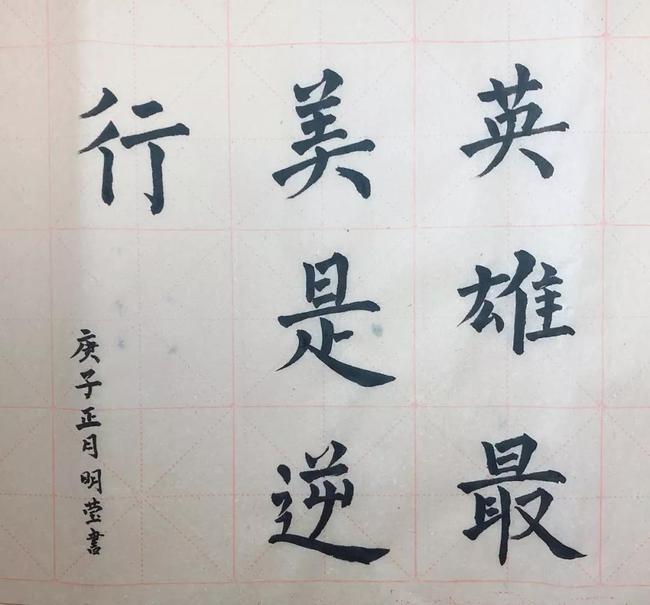 英雄最
美是逆
行
庚子正月明莹書